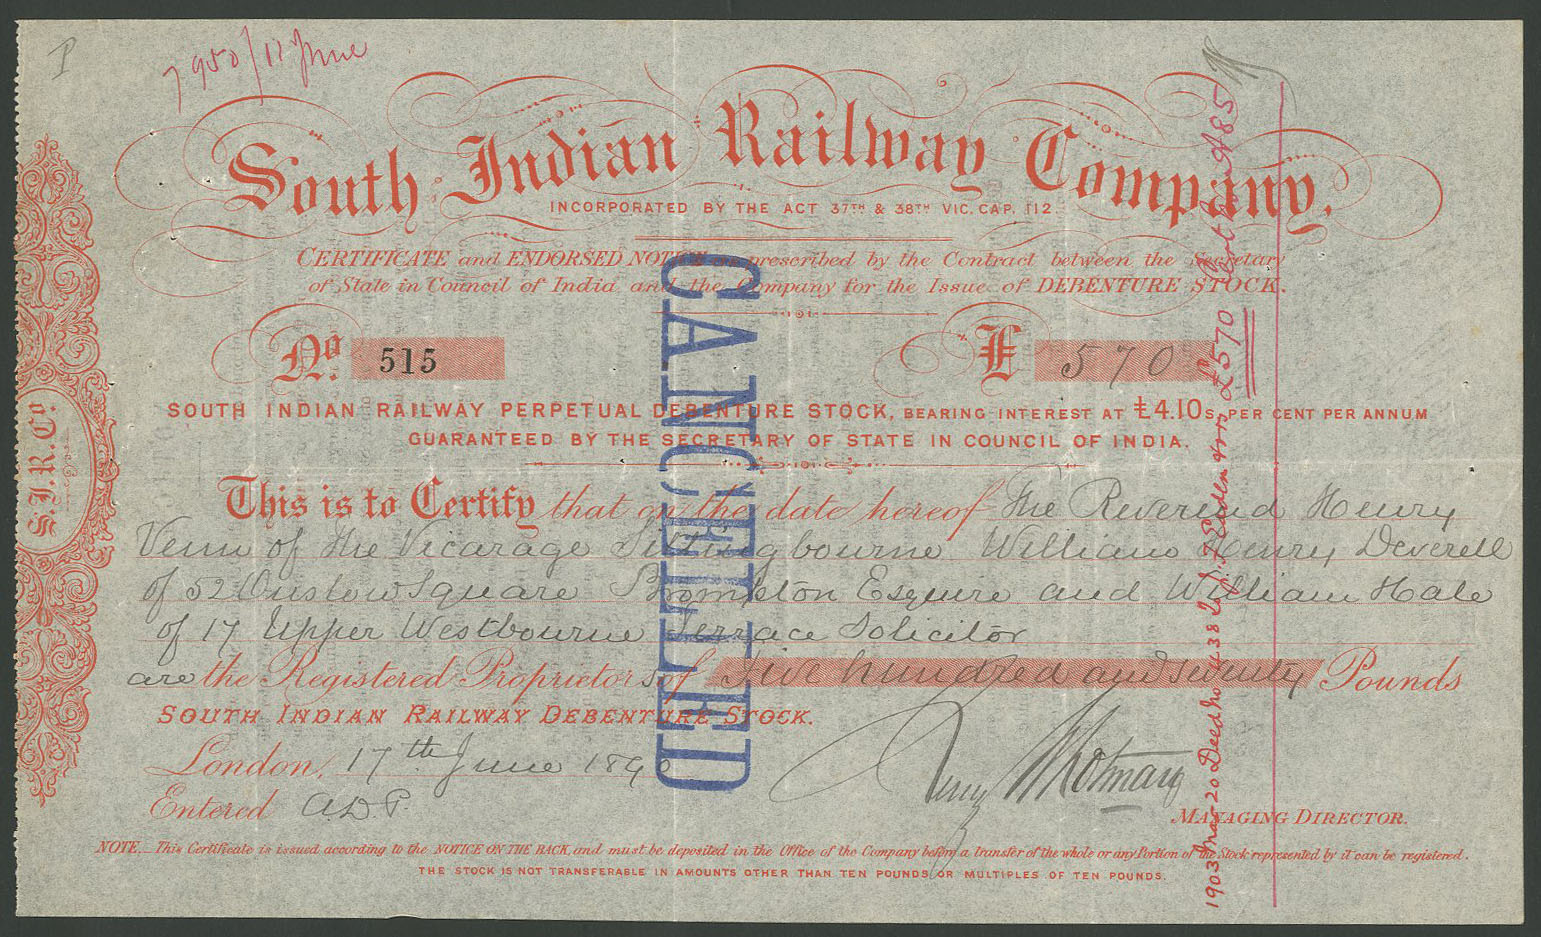 P
7950/17 June
South Indian Railway Company.
INCORPORATED BY THE ACT 37TH & 38TH VIC. CAP. 112.
CERTIFICATE and ENDORSED NOTICE as prescribed by the Contract between the Secretary
of State in Council of India and the Company for the Issue of DEBENTURE STOCK.
No. 515
£ 570
SOUTH INDIAN RAILWAY PERPETUAL DEBENTURE STOCK, BEARING INTEREST AT £4.10s. PER CENT PER ANNUM
GUARANTEED BY THE SECRETARY OF STATE IN COUNCIL OF INDIA.
This is to Certify that on the date hereof The Reverend Henry
Venn of the Vicarage Sittingbourne William Henry Deverell
of 52 Onslow Square Brompton Esquire and William Hale
of 17 Upper Westbourne Terrace Solicitor
are the Registered Proprietors of Five hundred and seventy Pounds
SOUTH INDIAN RAILWAY DEBENTURE STOCK.
London, 17th June 1890
Entered A.D.P.
MANAGING DIRECTOR.
NOTE.__This Certificate is issued according to the NOTICE ON THE BACK, and must be deposited in the Office of the Company before a transfer of the whole or any Portion of the Stock represented by it can be registered.
THE STOCK IS NOT TRANSFERABLE IN AMOUNTS OTHER THAN TEN POUNDS OR MULTIPLES OF TEN POUNDS.
S.I.R.Co.
CANCELLED
1903 Mar 20 Deed No 438 £570